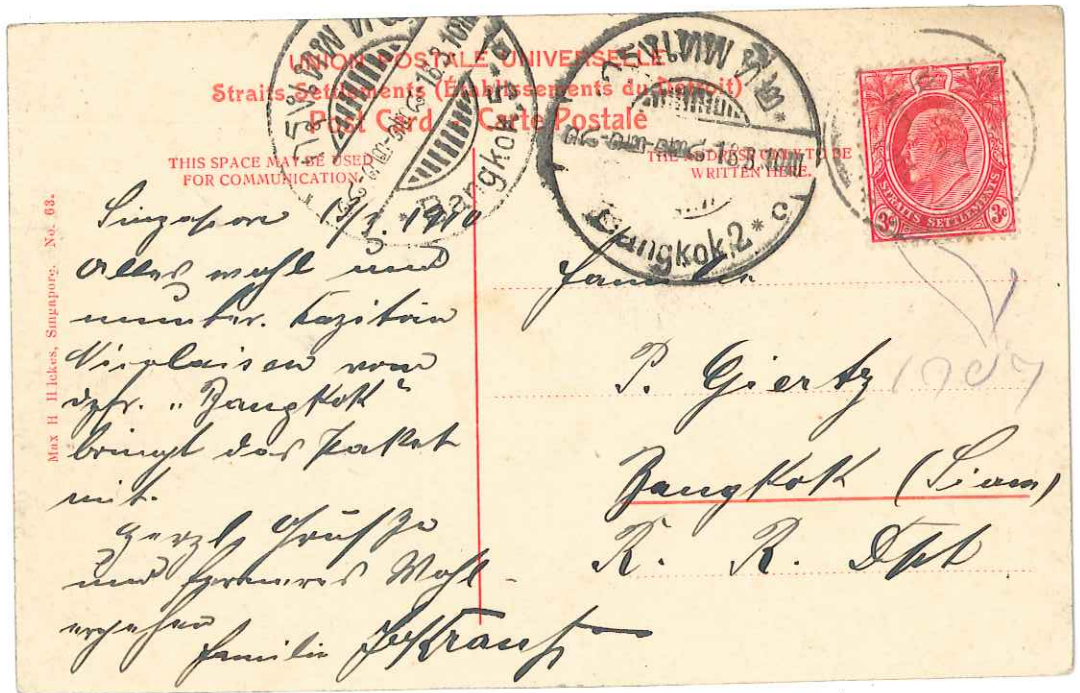 UNION POSTALE UNIVERSELLE
Straits Settlements (Établissements du Détroit)
Post Card - Carte Postale
THIS SPACE MAY BE USED
FOR COMMUNICATION.
THE ADDRESS ONLY TO BE
WRITTEN HERE.
Max H. Hilckes, Singapore. No. 63.
Bangkok 5
18.3.10
Bangkok 2 * c
18.3.10
STRAITS SETTLEMENTS
3c 3c
Singapore 1910
Alles wohl und
munter. Kapitän
Nicolaisen vom
Dpfr. „Bangkok"
bringt das Paket
mit.
Herzl. Grüße
und ferneres Wohl-
ergehen
Familie
Familie
P. Giertz
Bangkok (Siam)
R. R. Dpt